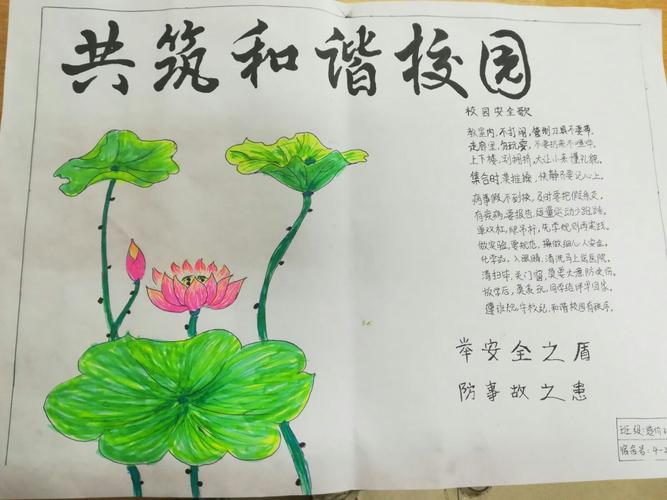 共筑和谐校园
校园安全歌
教室内,不打闹,管制刀具不要带.
走廊里,勿玩耍,不要
上下楼,别拥挤,大让小来懂礼貌.
集合时,莫推操,快静齐要记心上.
病事假,不到校,及时要把假条交.
有疾病,要报告,适量运动少跑跳.
单双杠,爬吊杆,先学规则再实践.
做实验,要规范,操做细心人安全.
化学品,入眼睛,清洗马上送医院.
清扫毕,关门窗,莫要大意防受伤.
放学后,莫贪玩,同学结伴早回家.
遵班规,守校纪,和谐校园有秩序.
举安全之盾
防事故之患
班级:造价
宿舍号:4-2